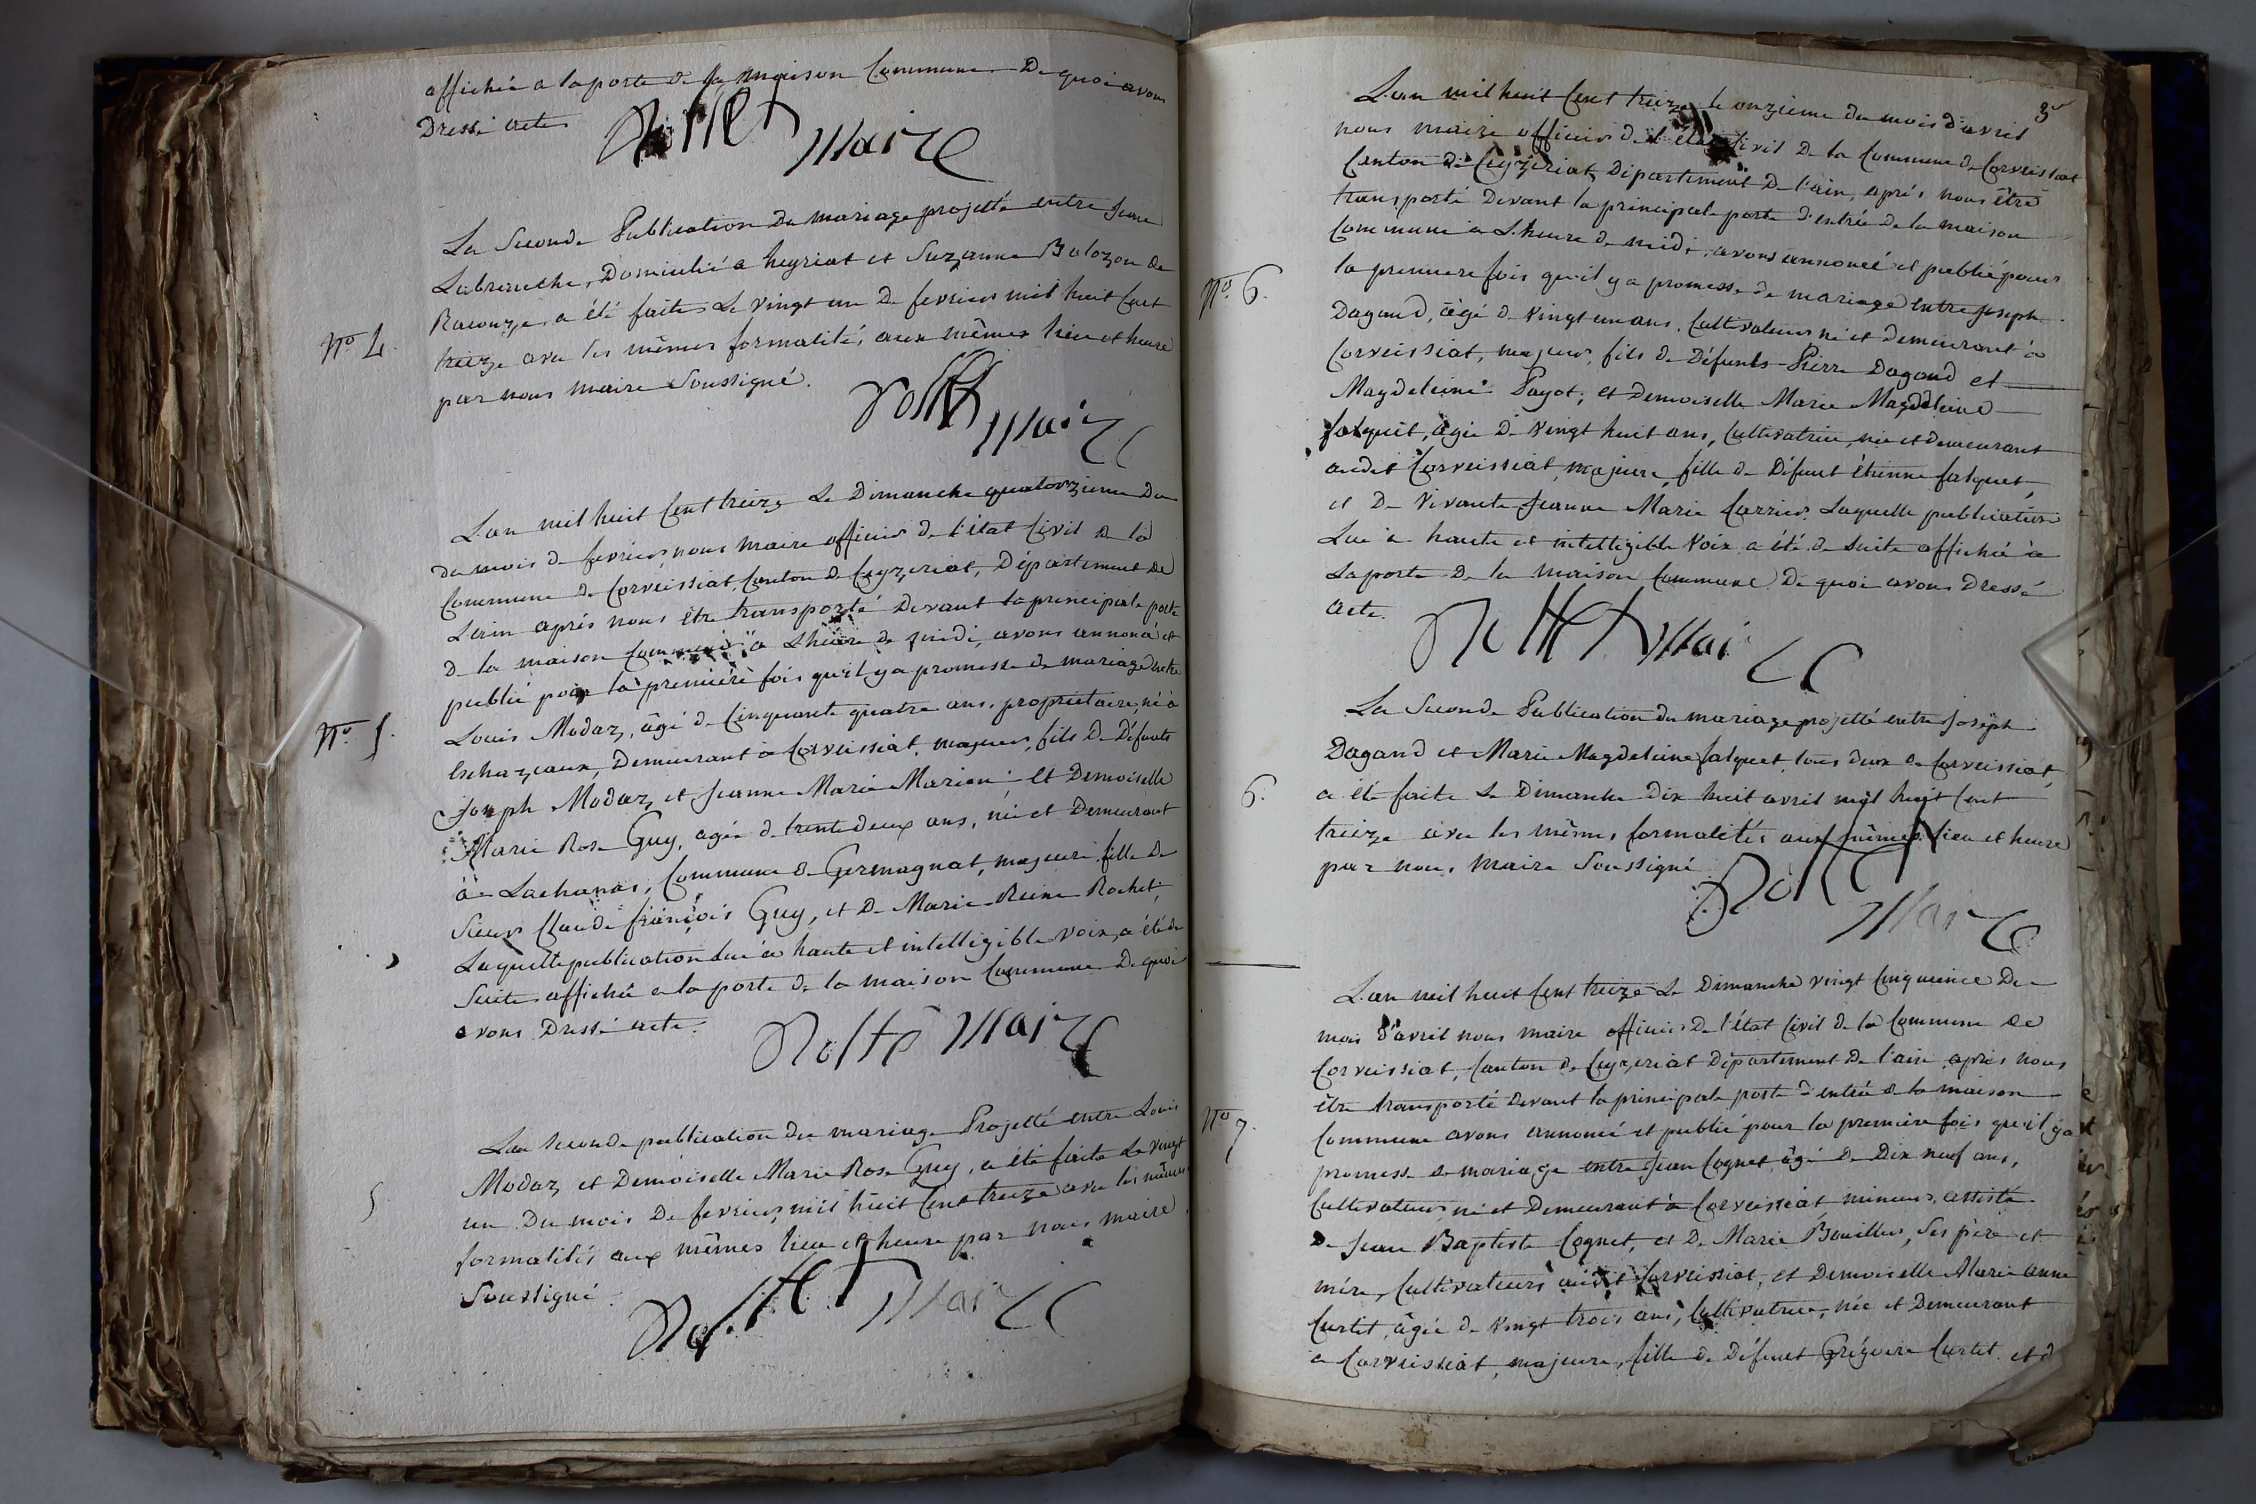 affichée a la porte de la maison Commune De quoi avons
Dressé acte
Maire
La Seconde Publication du mariage projetté entre Jean
Labranche, Domicilié a heyriat et Suzanne Balozon de
Racouze, a été faite Le Vingt un De fevrier mil huit Cent
treize avec les mêmes formalités aux mêmes lieu et heure
par nous Maire Soussigné.
Maire
No 4.
L'an mil huit Cent treize Le Dimanche quatorzieme Du
du mois de fevrier, nous Maire officier de l'état Civil de la
Commune de Corveissiat, Canton de Ceyzeriat, Département de
L'ain après nous être transporté Devant la principale porte
de la maison Commune à L'heure de midi, avons annoncé et
publié pour la première fois qu'il y a promesse de mariage entre
Louis Modaz, âgé de Cinquante quatre ans, propriétaire, né à
Demeurant à Corveissiat, majeur, fils de Défunts
Joseph Modaz et Jeanne Marie Marion; Et Demoiselle
Marie Rose Guy, agée de trente deux ans, née et Demeurant
à Lachanas, Commune de Germagnat, majeure fille de
Sieur Claude françois Guy, et De Marie Reine Rochet;
Laquelle publication Lue à haute et intelligible voix, a été de
Suite affichée a la porte de la maison Commune De quoi
avons Dressé acte.
Maire
No 5.
La seconde publication du mariage Projetté entre Louis
Modaz et Demoiselle Marie Rose Guy, a été faite Le vingt
un Du mois De fevrier mil huit Cent treize avec les mêmes
formalités aux mêmes lieu et heure par nous maire
Soussigné.
Maire
5
3
L'an mil huit Cent treize le onzieme du mois d'avril
nous maire officier de l'état Civil De la Commune de Corveissiat
Canton de Ceyzeriat, Département De l'ain, après nous être
transporté Devant la principale porte d'entrée de la maison
Commune à L'heure de midi, avons annoncé et publié pour
la premiere fois qu'il y a promesse de mariage entre Joseph
Dagand, âgé de Vingt un ans, Cultivateur, né et demeurant à
Corveissiat, majeur, fils de Défunts Pierre Dagand et
Magdeleine Payot; et Demoiselle Marie Magdeleine
falquet, âgée De Vingt huit ans, Cultivatrice, née et demeurant
audit Corveissiat, majeure, fille de Défunt étienne falquet,
et De Vivante Jeanne Marie Carrier. Laquelle publication
Lue à haute et intelligible Voix a été de Suite affichée à
La porte De la Maison Commune De quoi avons Dressé
acte.
Maire
No 6.
La Seconde Publication du mariage projetté entre Joseph
Dagand et Marie Magdeleine falquet, tous deux de Corveissiat,
a été faite Le Dimanche Dix huit avril mil huit Cent
treize avec les mêmes formalités aux mêmes lieu et heure
par nous Maire Soussigné
Maire
6.
L'an mil huit Cent treize Le Dimanche vingt Cinquieme De
mois d'avril nous maire officier de l'état Civil de la Commune de
Corveissiat, Canton de Ceyzeriat Département De l'ain après nous
être transporté Devant la principale porte d'entrée de la maison
Commune avons annoncé et publié pour la premiere fois qu'il y a
promesse de mariage entre Jean Cognet, âgé De Dix neuf ans,
Cultivateur, né et Demeurant à Corveissiat mineur, assisté
De Jean Baptiste Cognet, et De Marie Bouiller, Ses père et
mère, Cultivateurs audit Corveissiat, et Demoiselle Marie anne
Curtet, âgée de Vingt trois ans, Cultivatrice, née et Demeurant
a Corveissiat, majeure, fille de Défunt Grégoire Curtet et d
No 7.